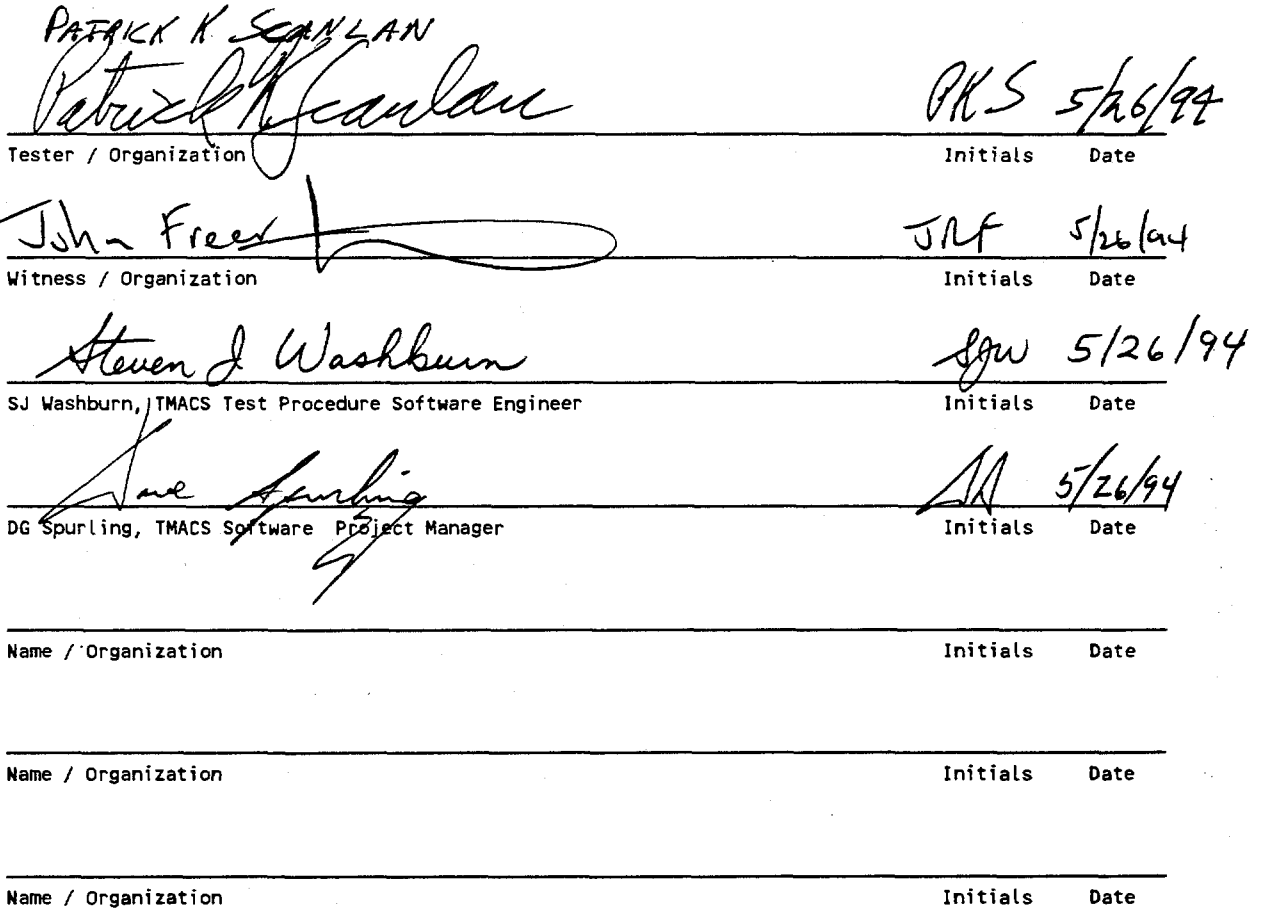 PATRICK K SCANLAN
Patrick K Scanlan PKS 5/26/94
Tester / Organization Initials Date
John Freer JRF 5/26/94
Witness / Organization Initials Date
Steven J Washburn SJW 5/26/94
SJ Washburn, TMACS Test Procedure Software Engineer Initials Date
Dave Spurling 5/26/94
DG Spurling, TMACS Software Project Manager Initials Date
Name / Organization Initials Date
Name / Organization Initials Date
Name / Organization Initials Date